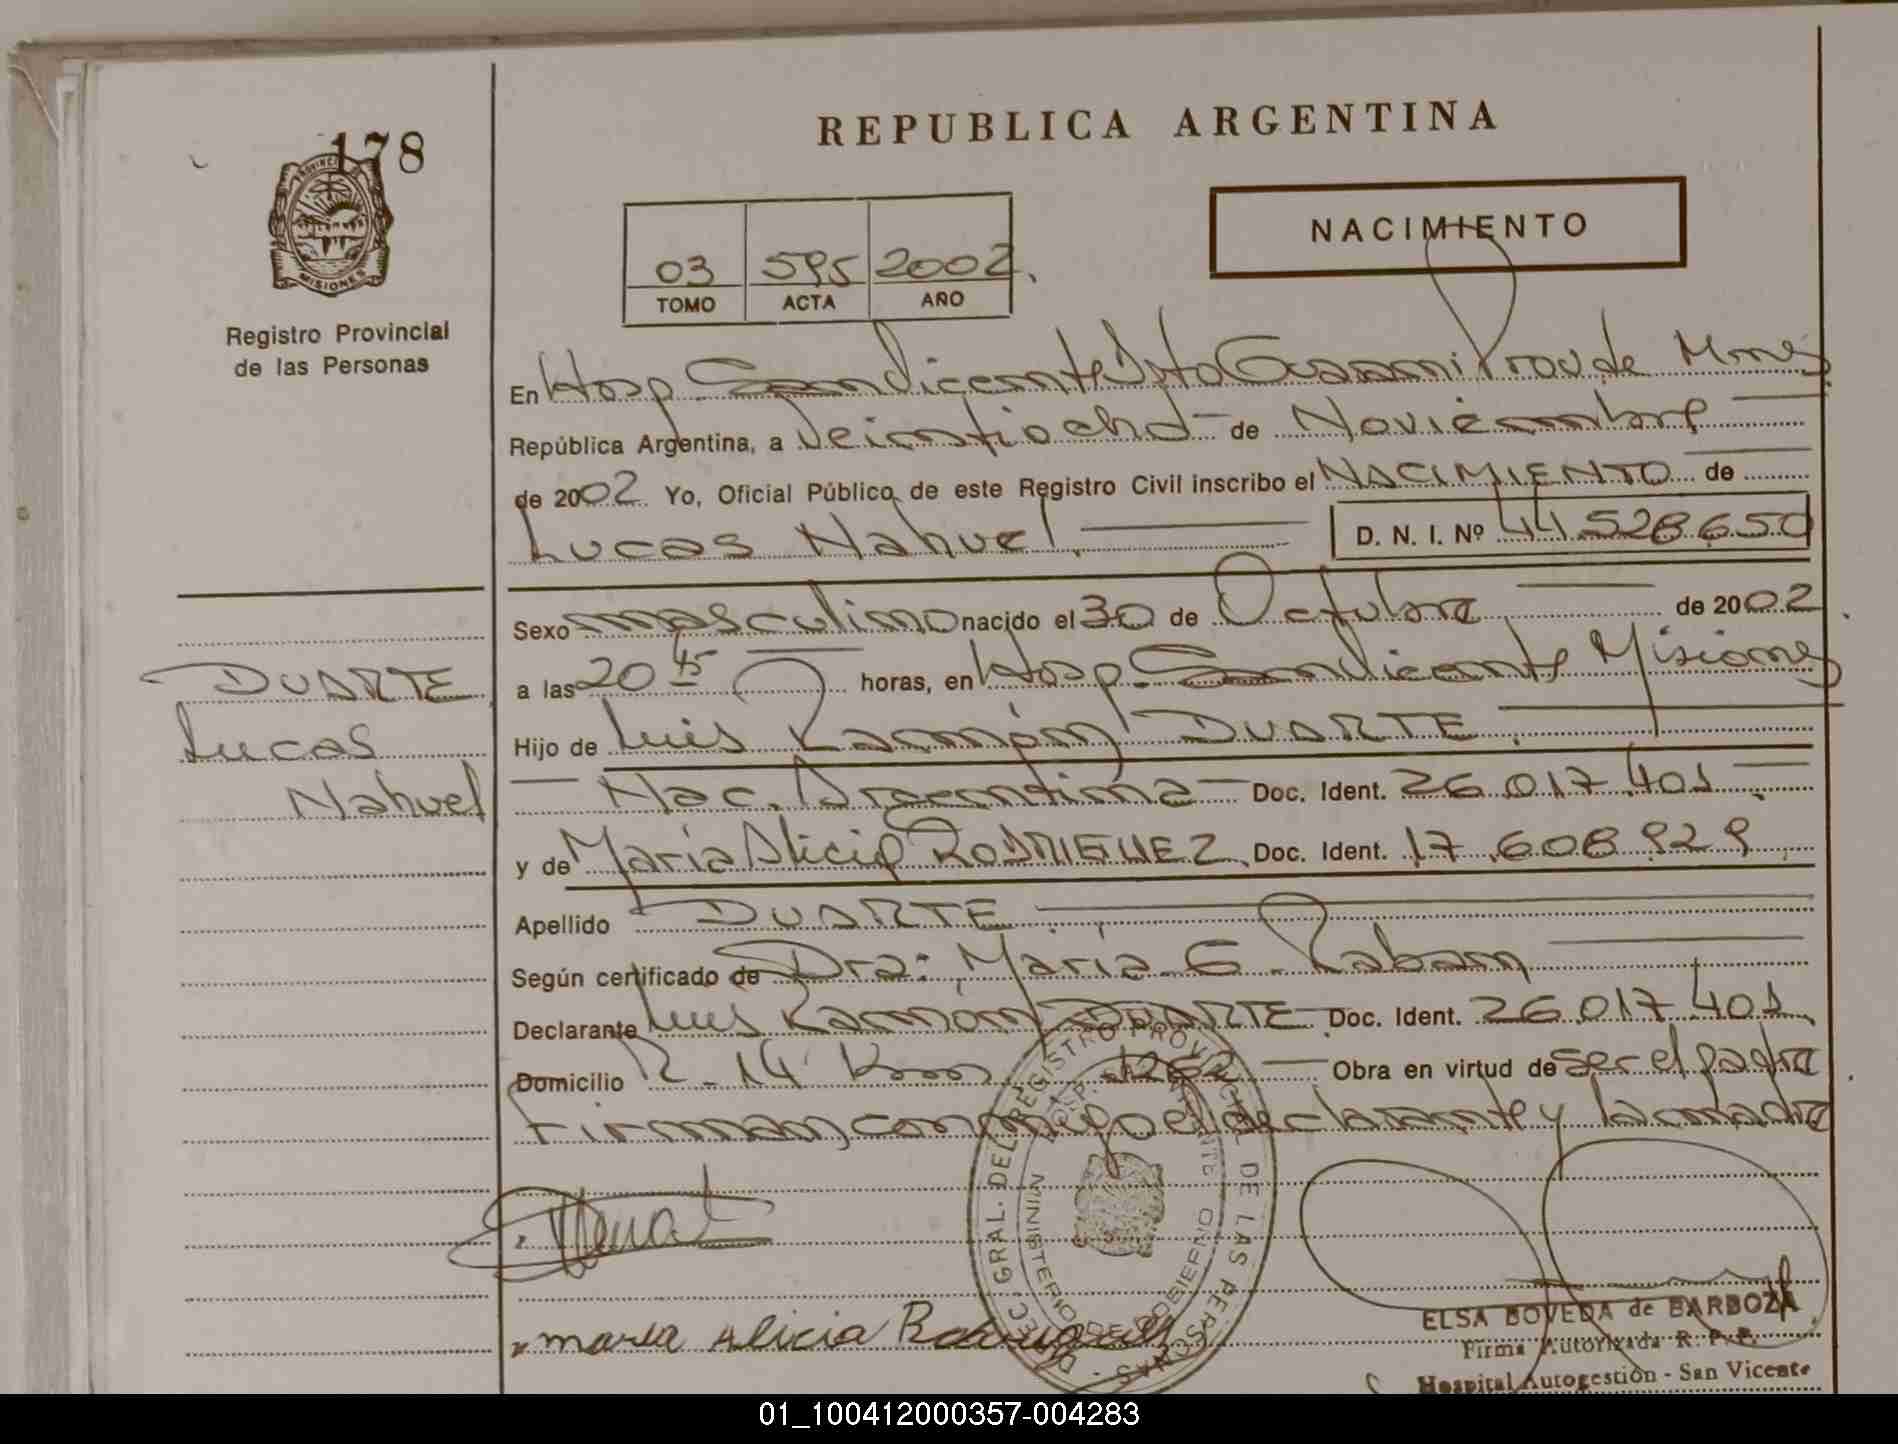 178
PROVINCIA DE
MISIONES
Registro Provincial
de las Personas
REPUBLICA ARGENTINA
NACIMIENTO
03 595 2002
TOMO ACTA AÑO
En Hosp San Vicente Dpto Guarani Prov de Mnes
República Argentina, a Veintiocho de Noviembre
de 2002 Yo, Oficial Público de este Registro Civil inscribo el NACIMIENTO de
Lucas Nahuel D. N. I. Nº 44 528 650
DUARTE
Lucas
Nahuel
Sexo masculino nacido el 30 de Octubre de 2002
a las 20 45 horas, en Hosp San Vicente Misiones
Hijo de Luis Ramón DUARTE
Nac. Argentina Doc. Ident. 26.017.401
y de María Alicia RODRIGUEZ Doc. Ident. 17.608.929
Apellido DUARTE
Según certificado de Dra: María G. Raban
Declarante Luis Ramón DUARTE Doc. Ident. 26.017.401
Domicilio R. 14 Km 1262 Obra en virtud de ser el padre
Firman conmigo el declarante y la madre
DIREC. GRAL. DEL REGISTRO PROVINCIAL DE LAS PERSONAS
MINISTERIO DE GOBIERNO
maria Alicia Rodriguez
ELSA BOVEDA de BARBOZA
Firma Autorizada R. P. P.
Hospital Autogestión - San Vicente
01_100412000357-004283